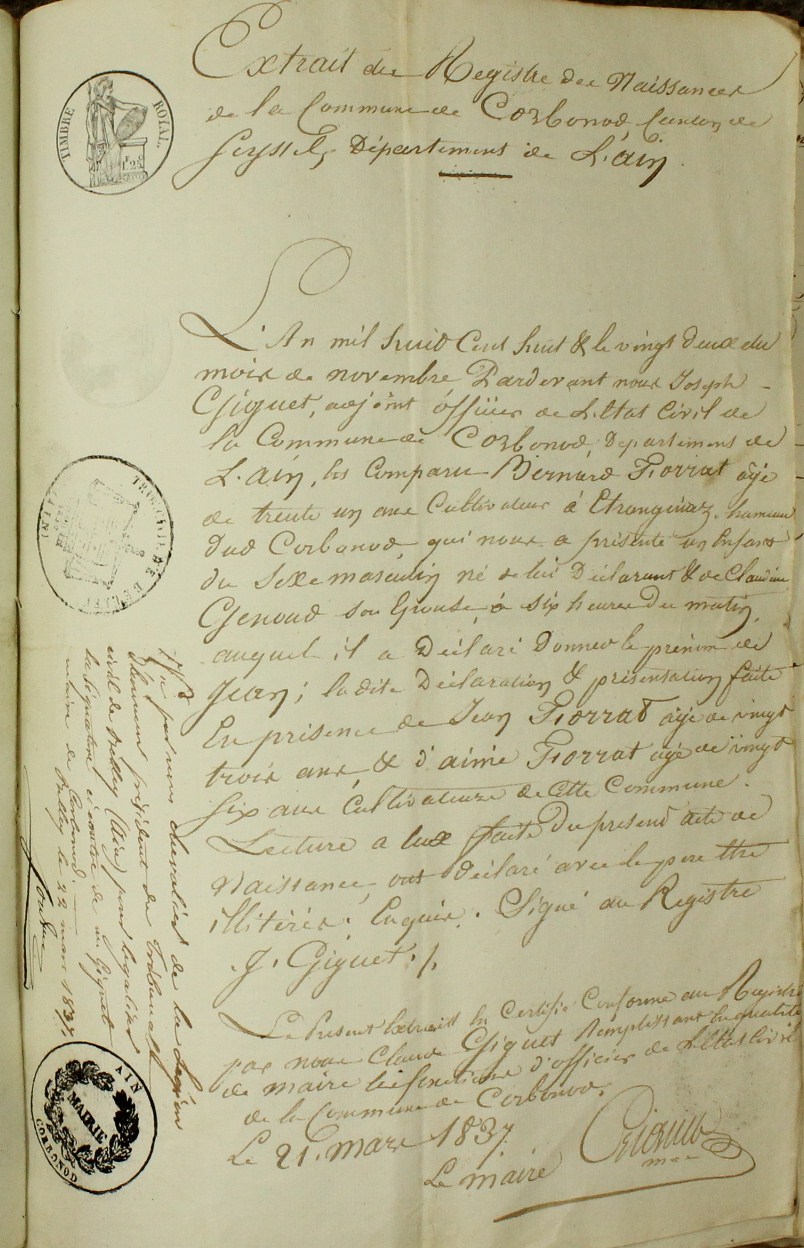 Extrait du Registre des Naissances
de la Commune de Corbonod Canton de
Seyssel, Département de L'ain.
TIMBRE ROYAL
L'An mil huit Cent huit & le vingt deux du
mois de novembre Pardevant nous Joseph
Giguet, adjoint officier de L'Etat Civil de
la Commune de Corbonod, Departement de
L'ain, Est Comparu Bernard Fiorrat âgé
de trente un ans Cultivateur à Etranginaz hameau
dud Corbonod, qui nous a présenté un Enfant
du Sexe masculin né de lui Déclarant & de Claudine
Genoud son Epouse, à six heures Du matin,
auquel il a Déclaré Donner le prénom de
Jean; la dite Déclaration & présentation faite
En présence de Jean Fiorrat âgé de vingt
trois ans, & d'aimé Fiorrat âgé de vingt
six ans Cultivateurs de Cette Commune.
Lecture a Eux faite Du présent acte de
Naissance, ont déclaré avec le pere être
illitérés. Enquis. Signé au Registre
J. Giguet ./.
Le Présent Extrait Est Certifié Conforme au Registre
par nous Claude Giguet Remplissant En qualité
de maire les fonctions d'officier de L'Etat Civil
de la Commune de Corbonod.
Le 21. Mars 1837
Le maire
Vu par nous chevalier de la Légion
d'honneur président du Tribunal
civil de Belley (Ain) pour légaliser
la signature ci contre de m. Giguet
maire de Corbonod.
Belley le 22 mars 1837
AIN
MAIRIE
CORBONOD